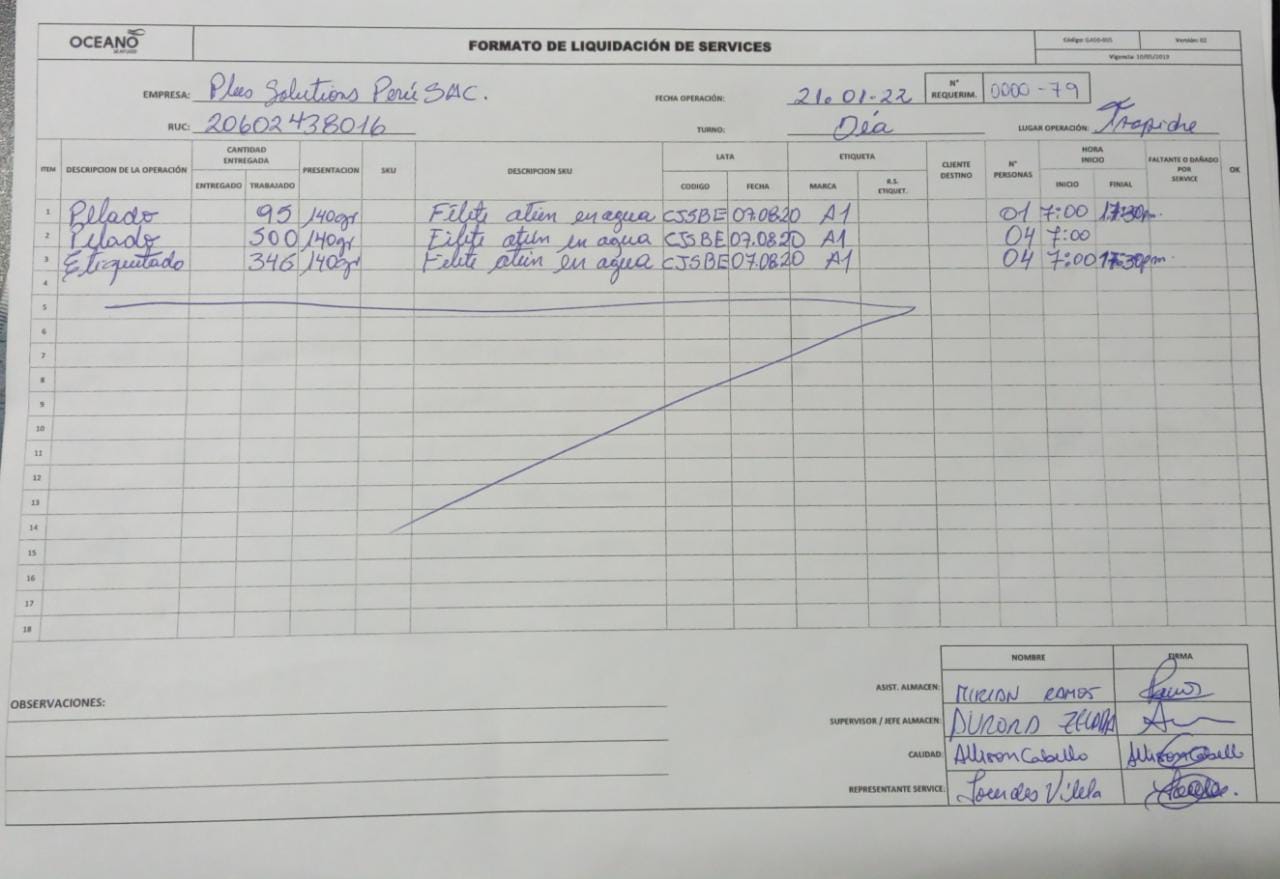 OCEANO
SEAFOOD
FORMATO DE LIQUIDACIÓN DE SERVICES
Código: GA00-005 Versión: 02
Vigencia: 10/05/2019
EMPRESA: Plus Solutions Perú SAC. FECHA OPERACIÓN: 21.01.22 N° REQUERIM. 0000-79
RUC: 20602438016 TURNO: Día LUGAR OPERACIÓN: Trapiche
ITEM DESCRIPCION DE LA OPERACIÓN CANTIDAD ENTREGADA PRESENTACION SKU DESCRIPCION SKU LATA ETIQUETA CLIENTE DESTINO N° PERSONAS HORA INICIO FALTANTE O DAÑADO POR SERVICE OK
ENTREGADO TRABAJADO CODIGO FECHA MARCA R.S. ETIQUET. INICIO FINIAL
1 Pelado 95 140gr Filete atún en agua CJSBE 07.08.20 A1 01 7:00 17:30pm.
2 Pelado 500 140gr Filete atún en agua CJSBE 07.08.20 A1 04 7:00
3 Etiquetado 346 140gr Filete atún en agua CJSBE 07.08.20 A1 04 7:00 17:30pm.
4
5
6
7
8
9
10
11
12
13
14
15
16
17
18
NOMBRE FIRMA
OBSERVACIONES:
ASIST. ALMACEN: MIRIAN RAMOS
SUPERVISOR / JEFE ALMACEN:
CALIDAD: Allison Cabello Allison Cabello
REPRESENTANTE SERVICE: Lourdes Vilela